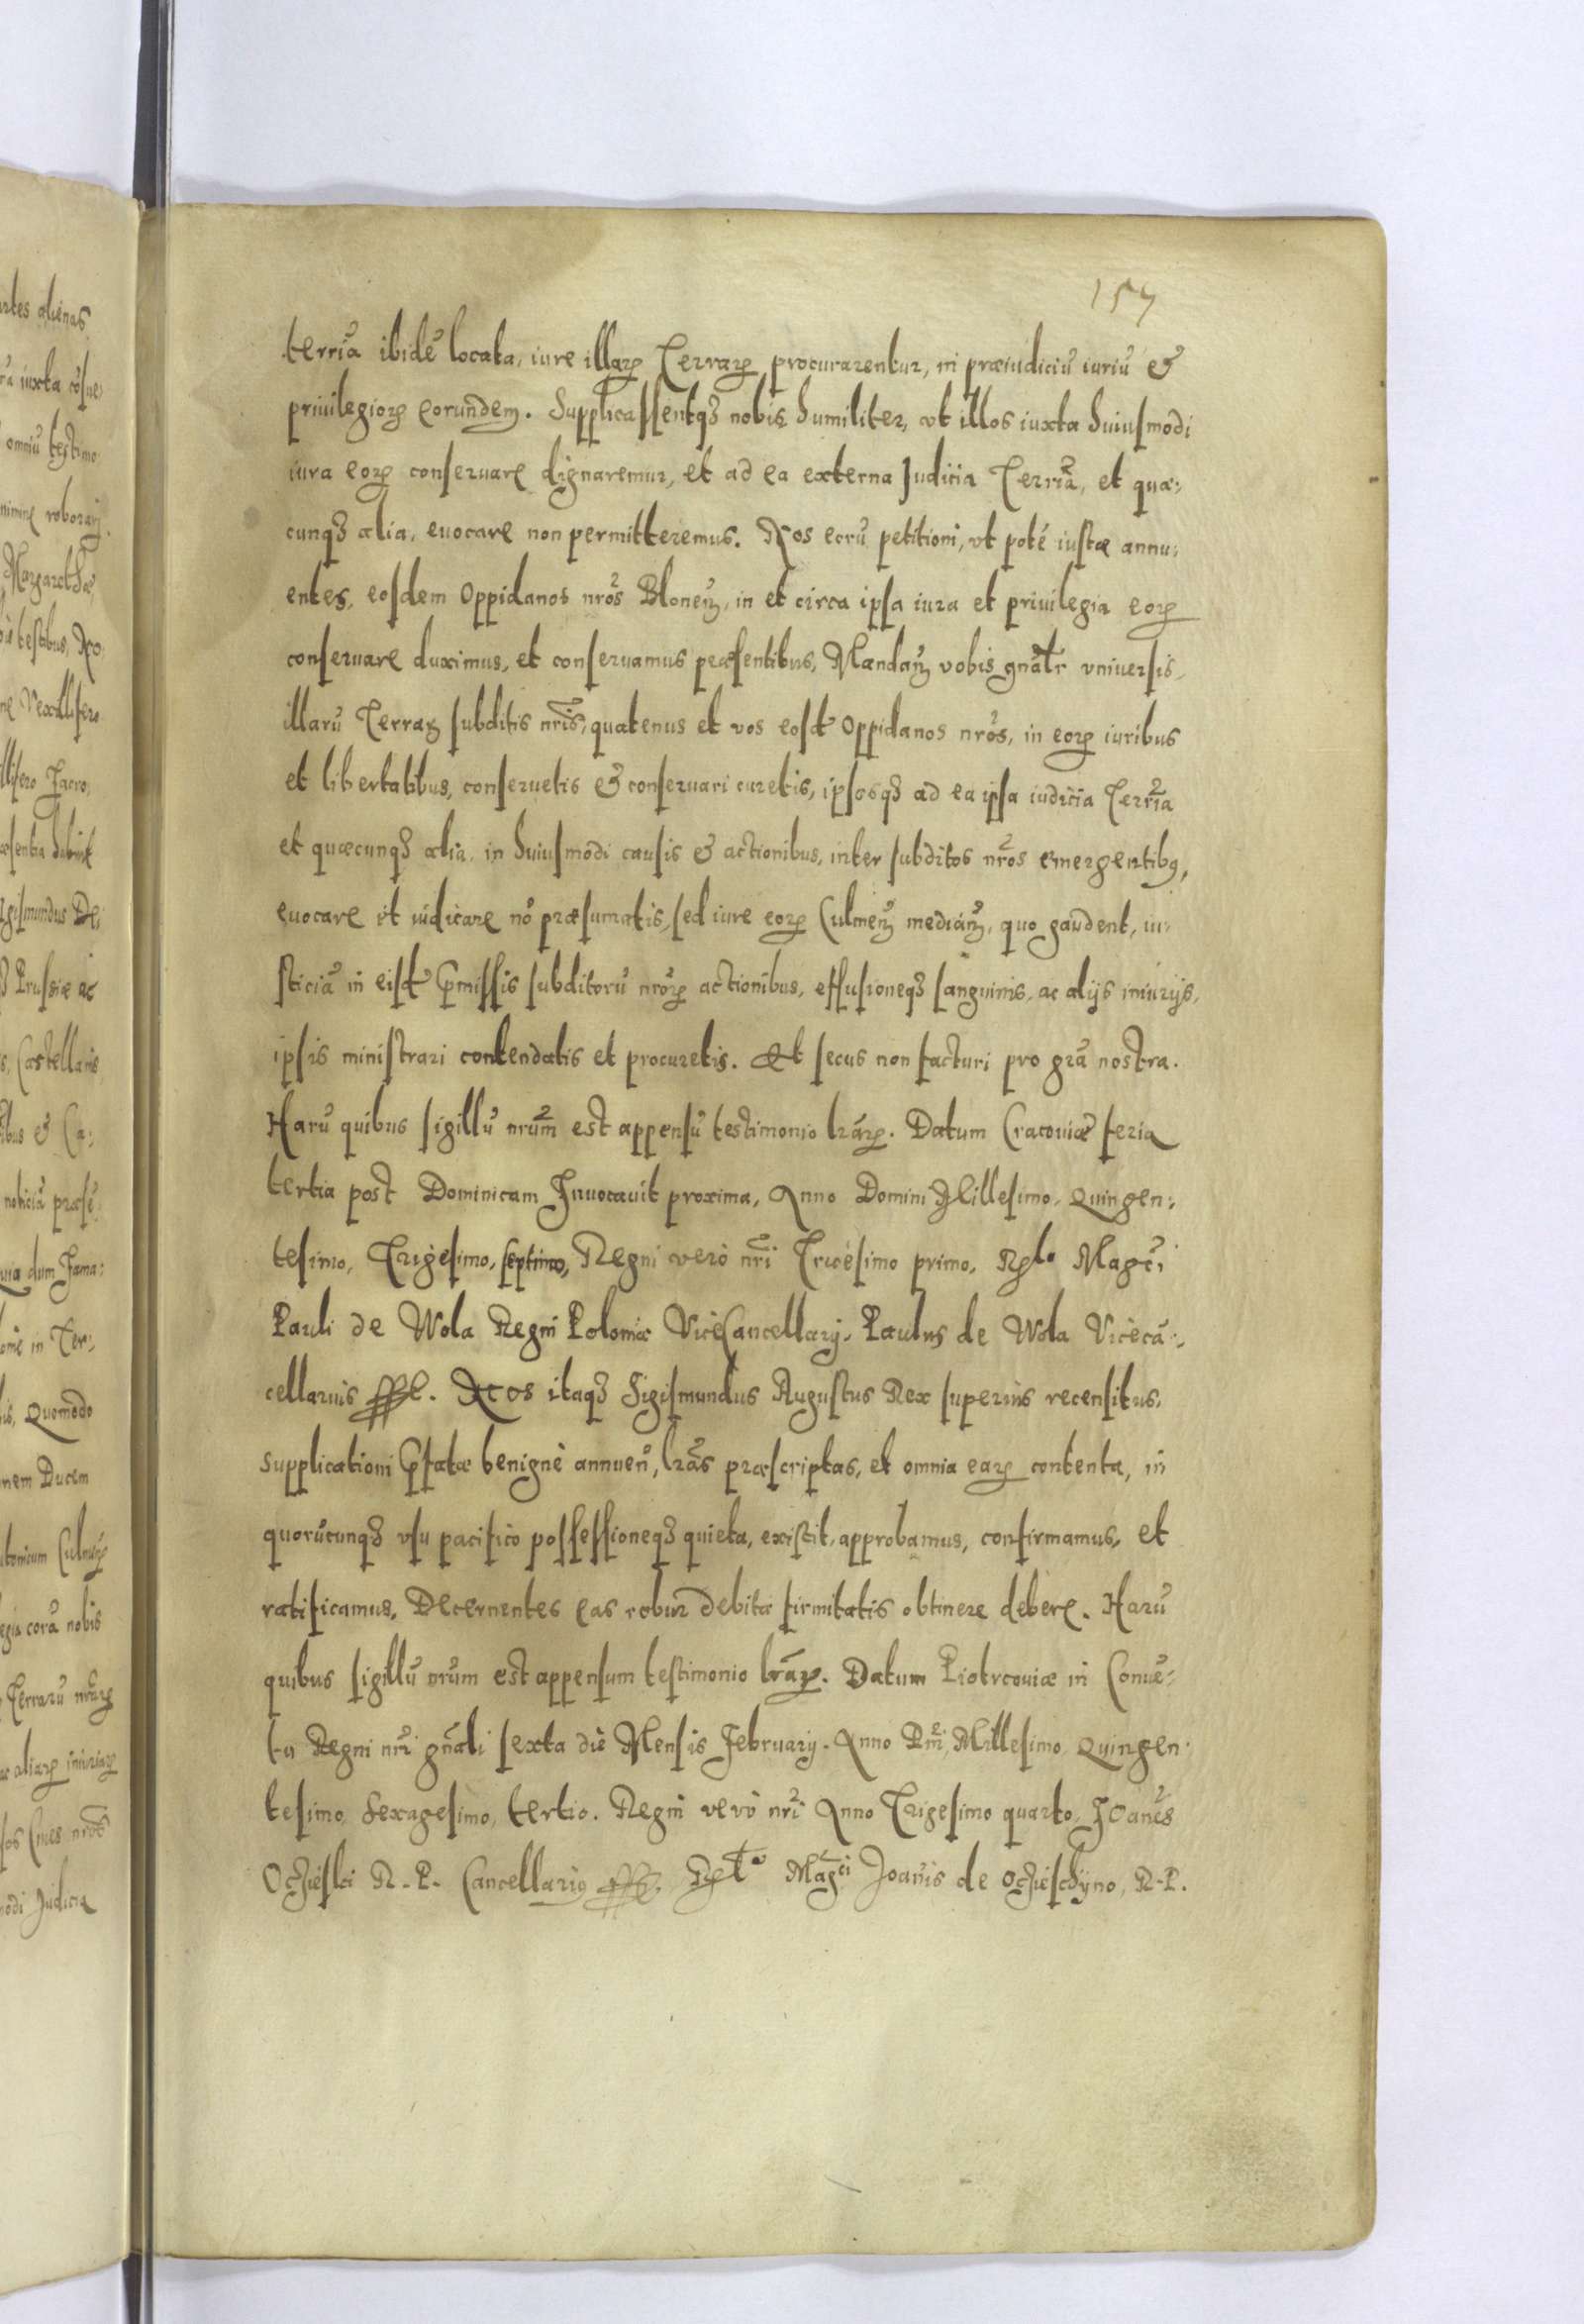 157
terria ibidē locata, iure illarꝝ Terrarꝝ procurarentur, in præiudiciū iuriū &
priuilegiorꝝ eorundem. Supplicassentqꝫ nobis humiliter, vt illos iuxta huiusmodi
iura eorꝝ conseruare dignaremur, et ad ea externa Judicia Terr̃ia, et quæ:
cunqꝫ alia, euocare non permitteremus. Nos eorū petitioni, vt poté iustæ annu:
entes, eosdem Oppidanos nr̃os Blonen̄, in et circa ipsa iura et priuilegia eorꝝ
conseruare duximus, et conseruamus præsentibus, Mandam̄ vobis gn̄alr vniuersis,
illarū Terrarꝝ subditis nr̃is, quatenus et vos eosd̄ Oppidanos nr̃os, in eorꝝ iuribus
et libertatibus, conseruetis & conseruari curetis, ipsosqꝫ ad ea ipsa iudicia Terr̃ia
et quæcunqꝫ alia, in huiusmodi causis & actionibus, inter subditos nr̃os emergentibꝰ,
euocare et iudicare nō præsumatis, sed iure eorꝝ Culmen̄ median̄, quo gaudent, iu:
sticiā in eisd̄ p̄missis subditorū nr̃orꝝ actionibus, effusioneqꝫ sanguinis, ac alijs iniurijs,
ipsis ministrari contendatis et procuretis. Et secus non facturi pro gr̄a nostra.
Harū quibus sigillū nr̃um est appensū testimonio lr̄arꝝ. Datum Cracouiæ feria
tertia post Dominicam Inuocauit proxima, Anno Domini Millesimo, Quingen:
tesimo, Trigesimo, septimo, Regni verò nr̃i Tricesimo primo, Rela Magci
Pauli de Wola Regni Poloniæ ViceCancellarij. Paulus de Wola Vicecā:
cellarius sspt. Nos itaqꝫ Sigismundus Augustus Rex superius recensitus,
supplicationi p̄fatæ benignè annuen̄, lr̄as præscriptas, et omnia earꝝ contenta, in
quorūcunqꝫ vsu pacifico possessioneqꝫ quieta, existit, approbamus, confirmamus, et
ratificamus, Decernentes eas robur debitæ firmitatis obtinere debere. Harū
quibus sigillū nr̃um est appensum testimonio lr̄arꝝ. Datum Piotrcouiæ in Conuē:
tu Regni nr̃i gn̄ali sexta die Mensis February. Anno Dn̄i, Millesimo Quingen:
tesimo, Sexagesimo, tertio. Regni verò nr̃i Anno Trigesimo quarto, Joanēs
Oczieski R. P. Cancellariꝰ sspt. Relta Magci Joan̄is de Oczieschyno, R. P.